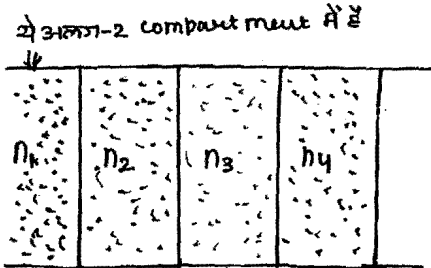 ये अलग-2 compartment में हैं
n₁ n₂ n₃ n₄